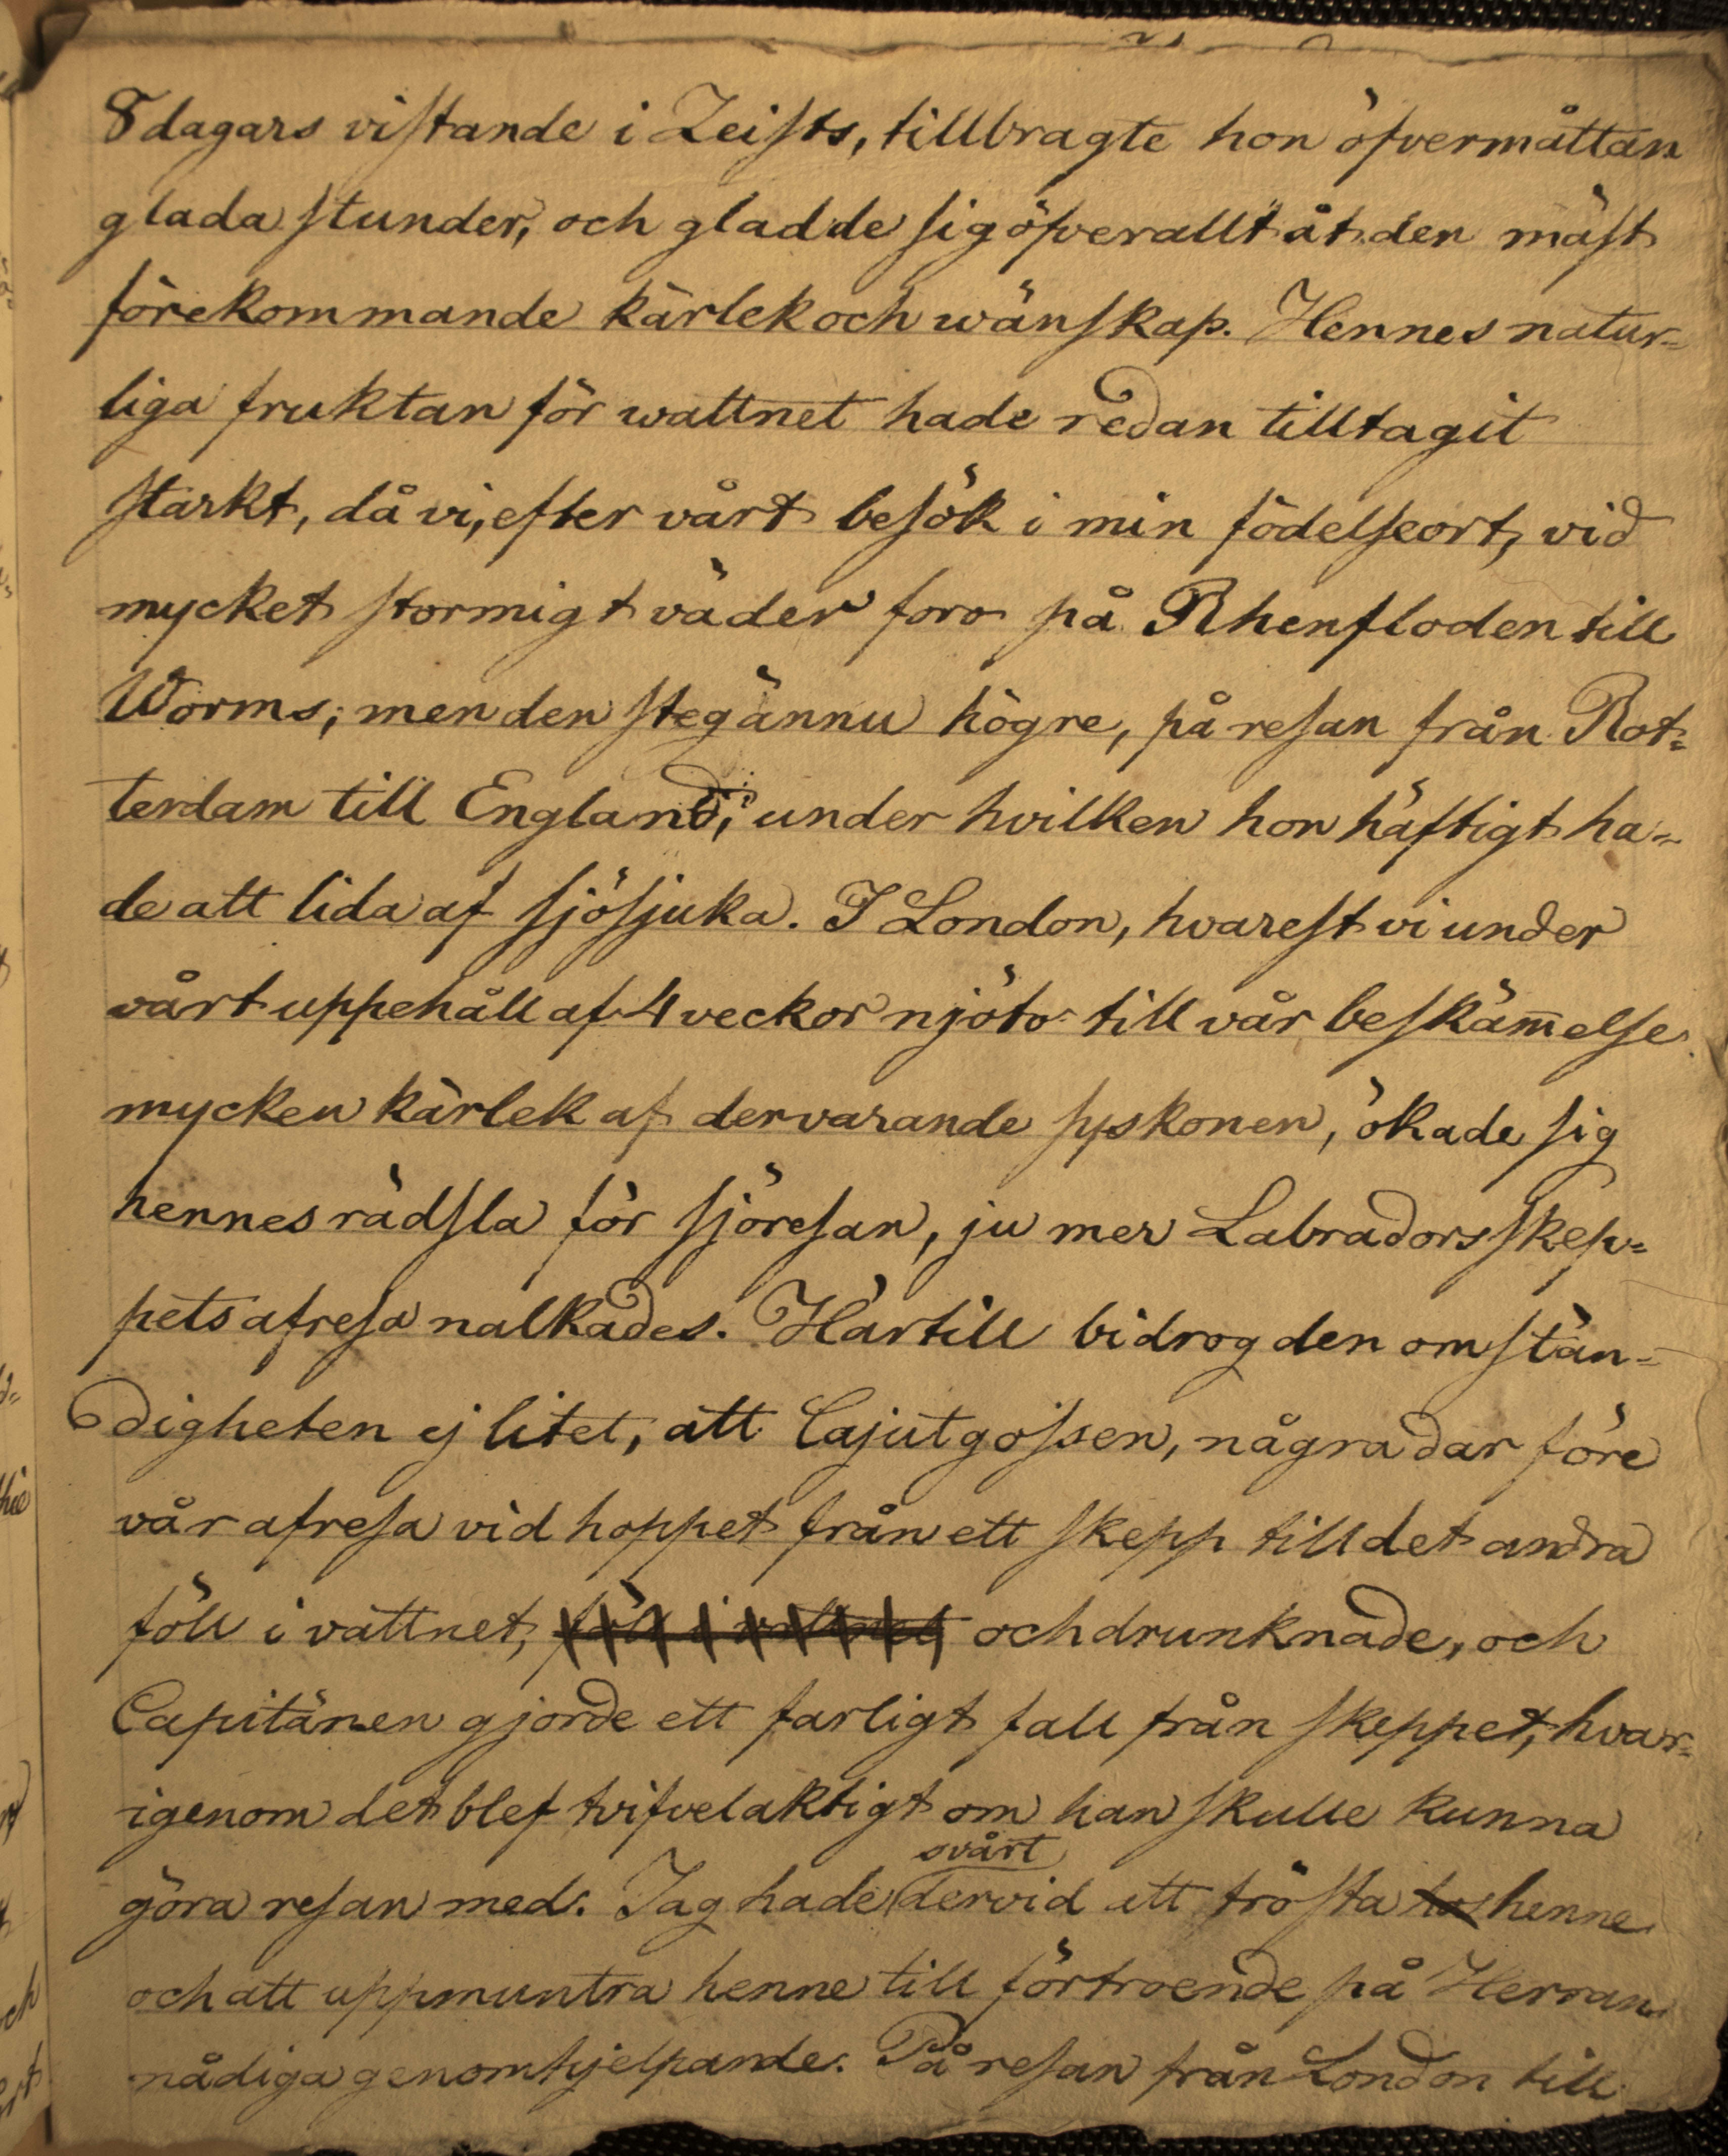 8 dagars vistande i Zeists, tillbragte hon öfvermåttan
glada stunder, och gladde sig öfverallt åt den mäst
förekommande kärlek och wänskap. Hennes natur-
liga fruktan för wattnet hade redan tilltagit
starkt, då vi, efter vårt besök i min födelseort, vid
mycket stormigt väder foro på Rhenfloden till
Worms; men den steg ännu högre, på resan från Rot-
terdam till England, under hvilken hon häftigt ha-
de att lida af sjösjuka. I London, hvarest vi under
vårt uppehåll af 4 veckor njöto till vår beskäm̅else
mycken kärlek af dervarande syskonen, ökade sig
hennes rädsla för sjöresan, ju mer Labradorsskep-
pets afresa nalkades. Härtill bidrog den omstän-
digheten ej litet, att Cajutgossen, några dar före
vår afresa vid hoppet från ett skepp till det andra
föll i vattnet, föll i vattnet och drunknade, och
Capitänen gjorde ett farligt fall från skeppet, hvar-
igenom det blef tvifvelaktigt om han skulle kunna
svårt
göra resan med. Jag hade dervid att trösta henne
och att uppmuntra henne till förtroende på Herrans
nådiga genomhjelpande. På resan från London till